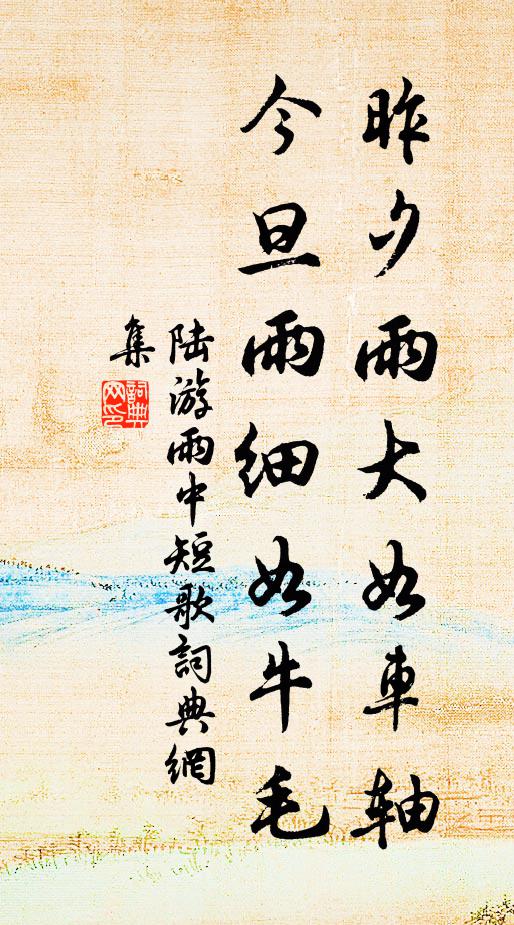 昨夕雨大如車軸
今旦雨細如牛毛
陆游雨中短歌詞典網
集
詞典
网印